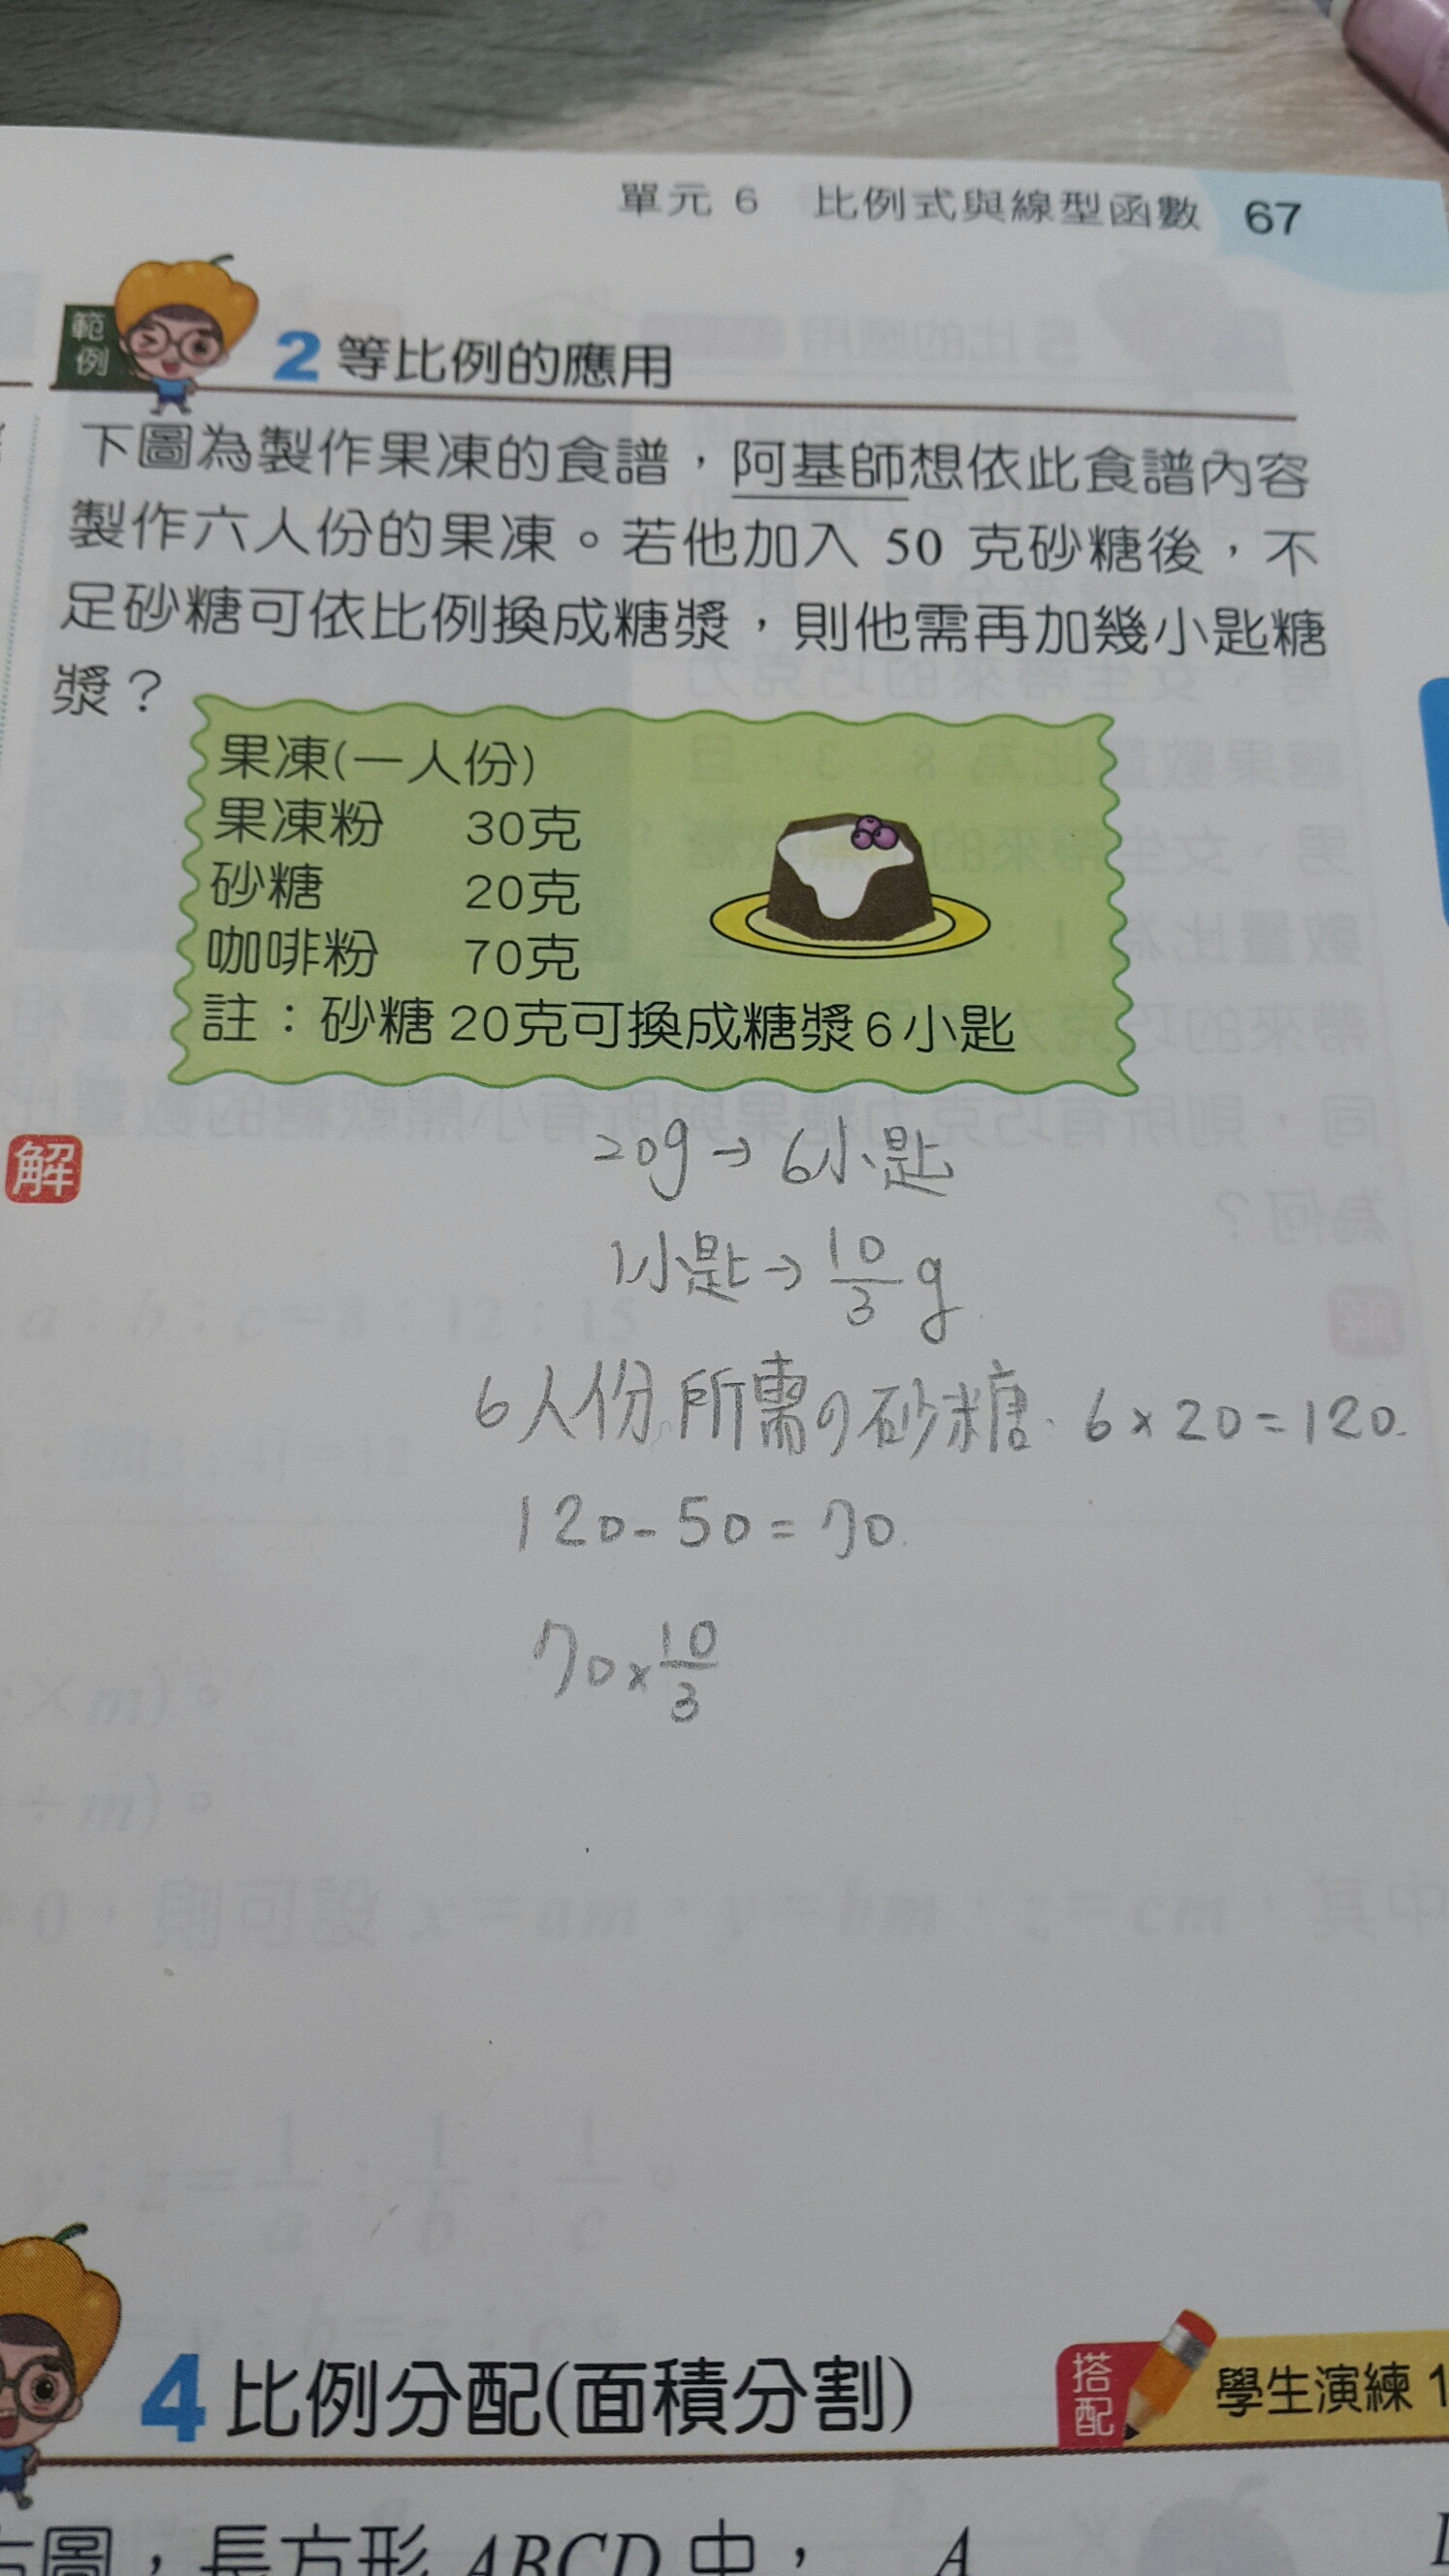 單元 6 比例式與線型函數 67
範例
2 等比例的應用
下圖為製作果凍的食譜，阿基師想依此食譜內容
製作六人份的果凍。若他加入 50 克砂糖後，不
足砂糖可依比例換成糖漿，則他需再加幾小匙糖
漿？
果凍(一人份)
果凍粉 30克
砂糖 20克
咖啡粉 70克
註：砂糖 20克可換成糖漿6小匙
解
20g→6小匙
1小匙→10/3 g
6人份所需の砂糖. 6×20=120.
120-50=70.
70×10/3
4 比例分配(面積分割)
搭配
學生演練 1
方圖，長方形 ABCD 中， A